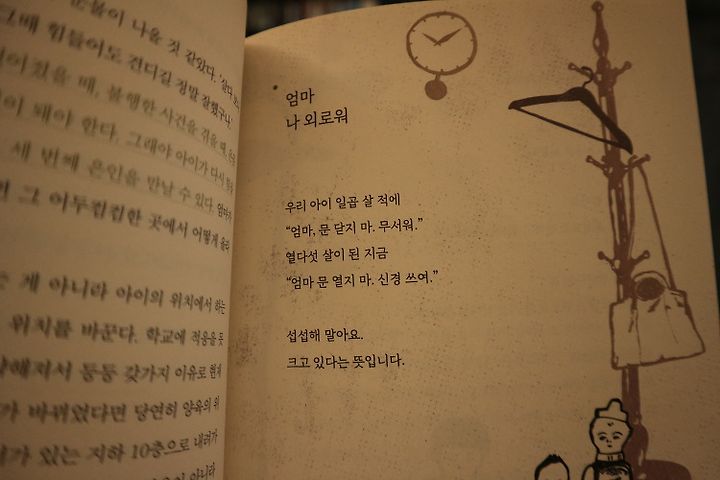 눈물이 나올 것 같았다. '살다
그때 힘들어도 견디길 정말 잘했구나.'
었을 때, 불행한 사건을 겪을 때,
이 돼야 한다. 그래야 아이가 다시
세 번째 은인을 만날 수 있다. 엄마가
그 어두컴컴한 곳에서 어떻게 올라
게 아니라 아이의 위치에서 하는
위치를 바꾼다. 학교에 적응을 못
해져서 둥둥 갖가지 이유로 현재
가 바뀌었다면 당연히 양육의 위
가 있는 지하 10층으로 내려가
아니라
엄마
나 외로워
우리 아이 일곱 살 적에
“엄마, 문 닫지 마. 무서워.”
열다섯 살이 된 지금
“엄마 문 열지 마. 신경 쓰여.”
섭섭해 말아요.
크고 있다는 뜻입니다.